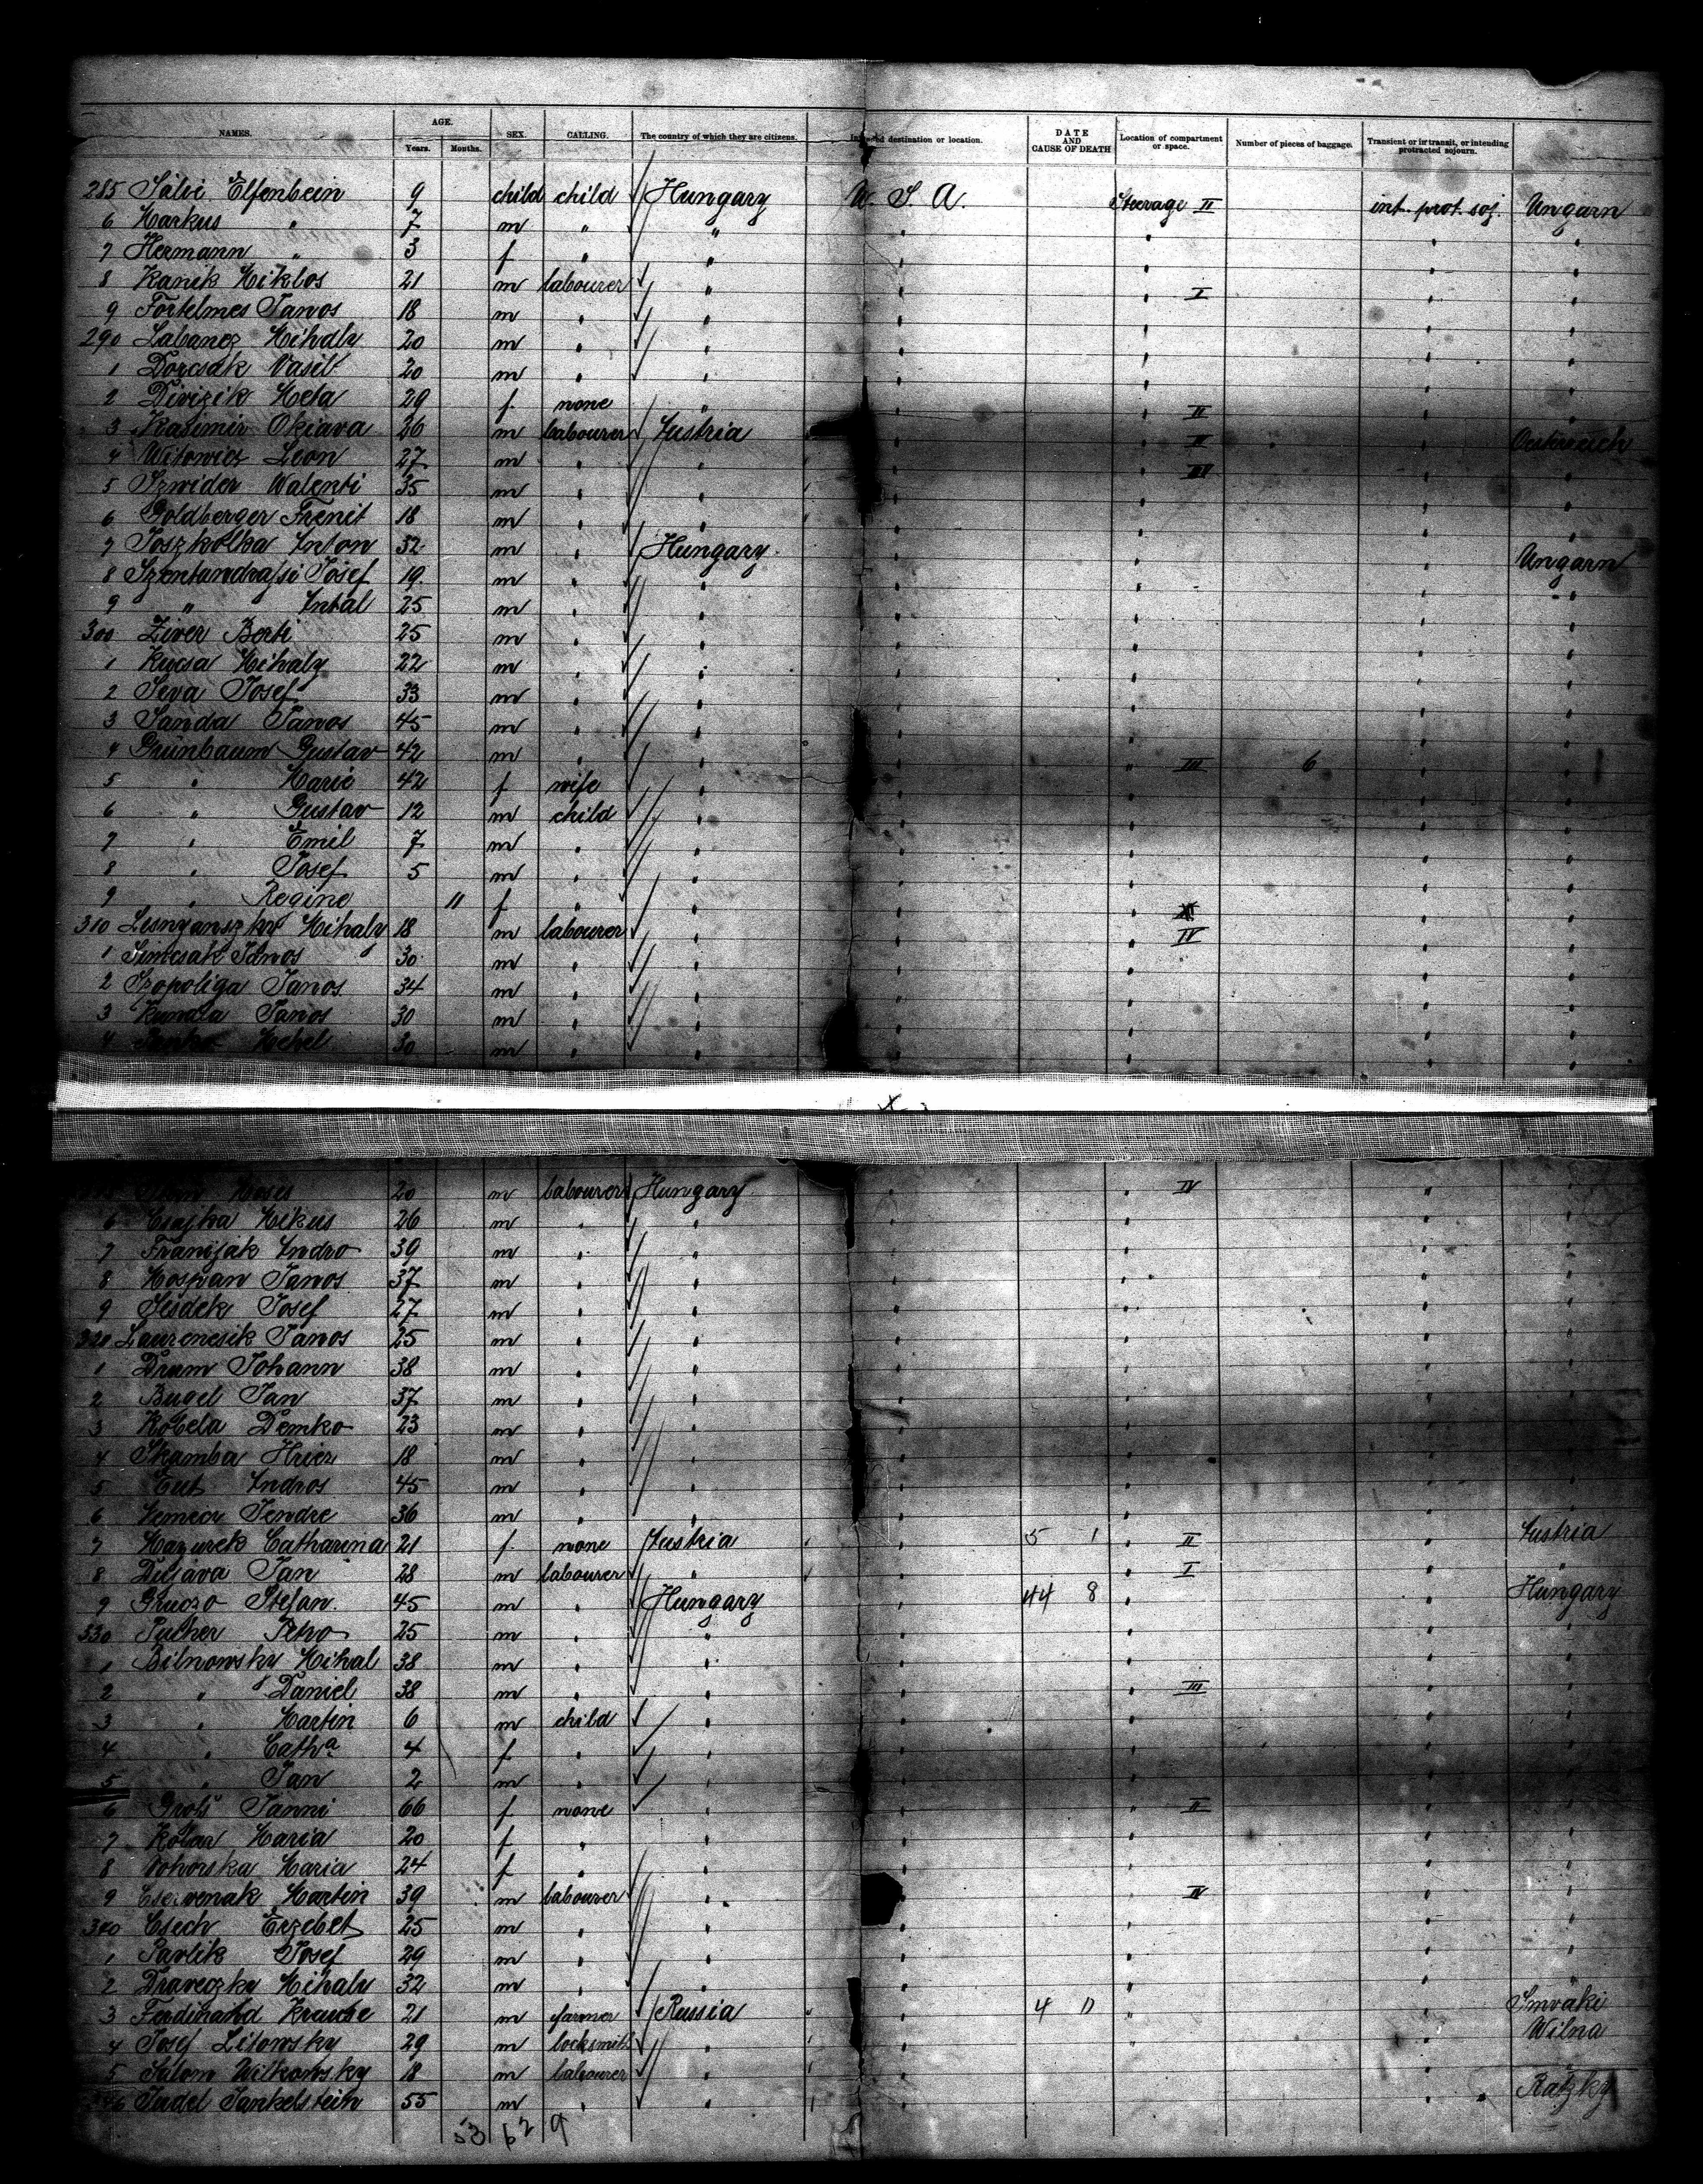 NAMES. AGE. SEX. CALLING. The country of which they are citizens. destination or location. DATE AND CAUSE OF DEATH Location of compartment or space. Number of pieces of baggage. Transient or in transit, or intending protracted sojourn.
Years. Months.
285 Sálvi Elfenbein 9 child child Hungary U. S. A. Steerage II int. prot. soj. Ungarn
6 Markus " 7 m " "
7 Hermann " 3 f " "
8 Kanik Miklos 21 m labourer " I
9 Förtelmes Janos 18 m " "
290 Labancz Mihaly 20 m " "
1 Dorcsak Vasil 20 m " "
2 Divizik Meta 29 f. none " II
3 Kasimir Okiava 26 m labourer Austria II Oesterreich
4 Witowicz Leon 27 m " " III
5 Szwider Walenti 35 m " "
6 Goldberger 18 m " "
7 Joszkolka Anton 32 m " Hungary Ungarn
8 Szentandrassi Josef 19. m " "
9 " Antal 25 m " "
300 Ziver Berti 25 m " "
1 Kucsa Mihaly 22 m " "
2 Seva Josef 33 m " "
3 Sanda Janos 45 m " "
4 Grünbaum Gustav 42 m " " III 6
5 " Marie 42 f wife "
6 " Gustav 12 m child "
7 " Emil 7 m " "
8 " Josef 5 m " "
9 " Regine 11 f " "
310 Lesnyanszky Mihaly 18 m labourer " IV
1 Simcsak Janos 30 m " "
2 Szopoliga Janos 34 m " "
3 Kundla Janos 30 m " "
4 Michel 30 m " "
Moses 20 m labourer Hungary IV
6 Csajka Mikus 26 m " "
7 Franijak Andro 39 m " "
8 Hospian Janos 37 m " "
9 Josef 27 m " "
320 Laurencsik Janos 25 m " "
1 Drum Johann 38 m " "
2 Bugel Jan 37 m " "
3 Kobela Demko 23 m " "
4 Skamba Hricz 18 m " "
5 Andros 45 m " "
6 Jendre 36 m " "
7 Mazurek Catharina 21 f. none Austria 5 1 II Austria
8 Dujava Jan 28 m labourer " I "
9 Gruczo Stefan. 45 m " Hungary 44 8 Hungary
330 Pucher Petro 25 m " "
1 Bilnowsky Mihal 38 m " "
2 " Daniel 38 m " " III
3 " Martin 6 m child "
4 " Cath.a 4 f " "
5 " Jan 2 m " "
6 Janni 66 f none " II
7 Kolar Maria 20 f " "
8 Vohorska Maria 24 f " "
9 Cservenak Martin 39 m labourer " IV
340 Csech Erzebet 25 m " "
1 Pavlik Josef 29 m " "
2 Draveczky Mihaly 32 m " "
3 Ferdinand Krause 21 m farmer Russia 4 Suwalki
4 Josef Litowsky 29 m locksmith " Wilna
5 Salom Wilkowsky 18 m labourer "
346 Judel Jankelstein 55 m " " Ratzky
53 62 9